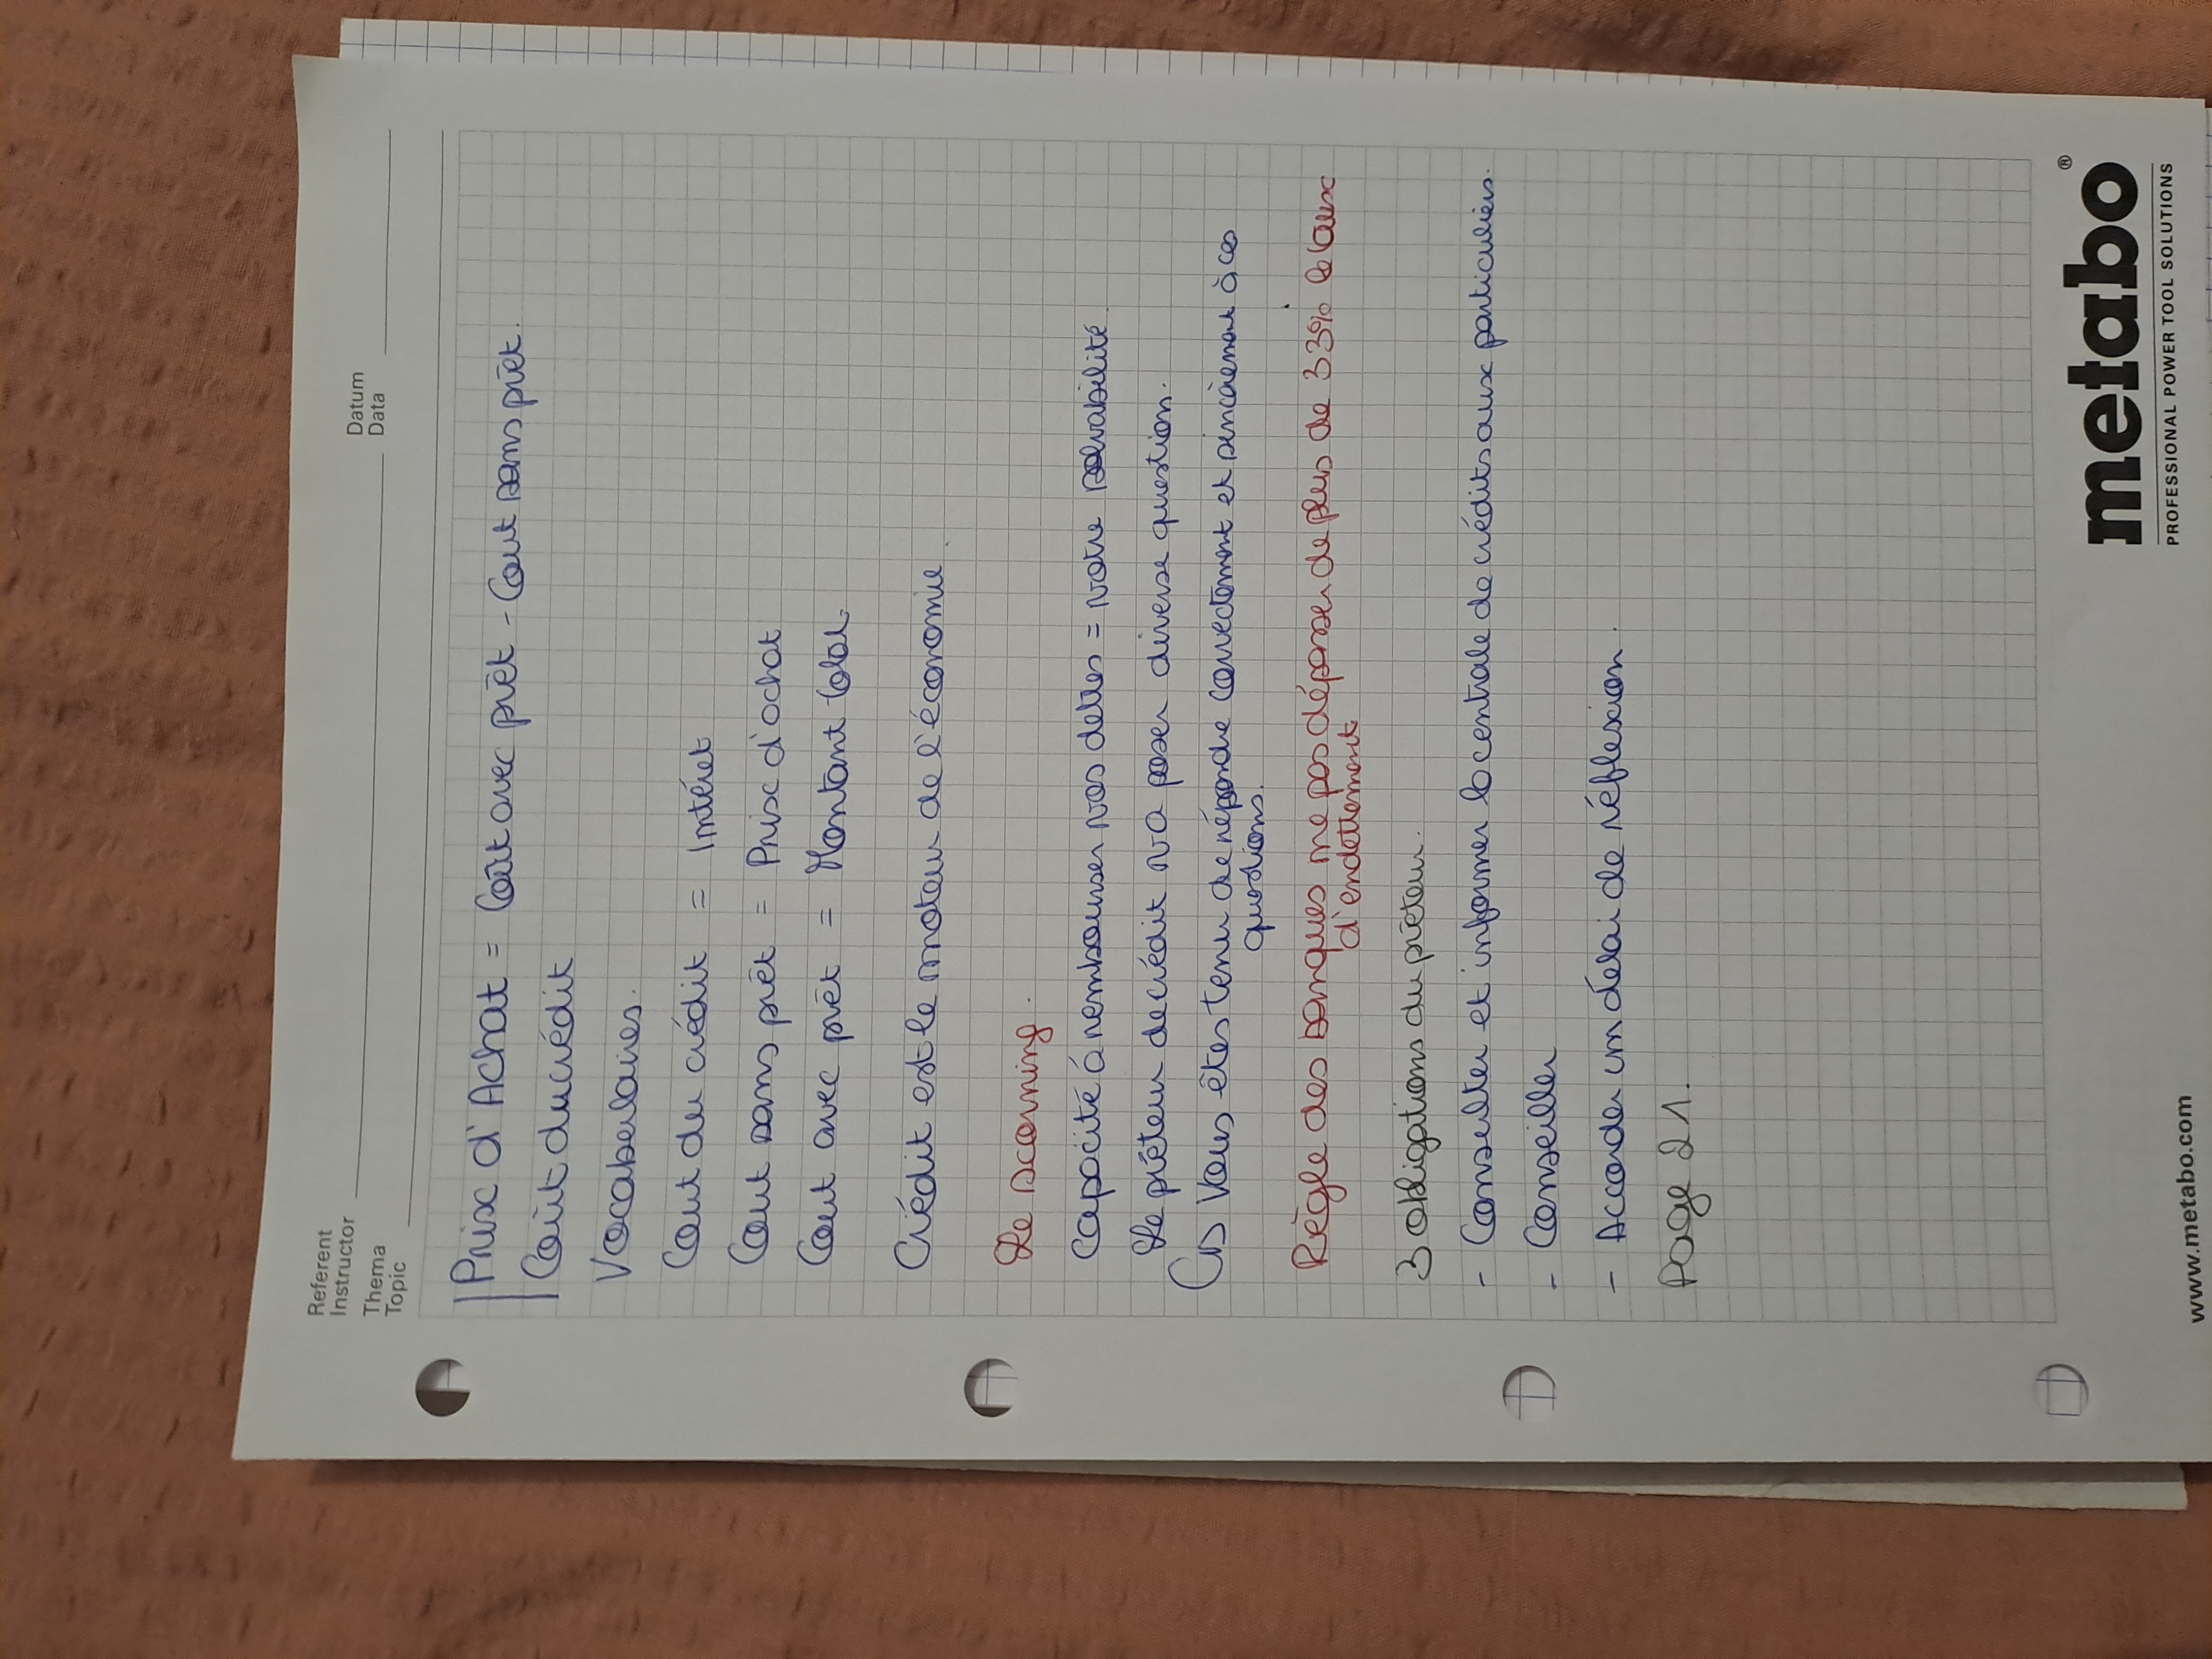 Referent
Instructor
Datum
Data
Thema
Topic
Prix d'Achat = Coût avec prêt - Cout sans prêt.
Coût du crédit
Vocabulaires.
Cout du crédit = Intéret
Cout sans prêt = Prix d'achat
Cout avec prêt = Montant total.
Crédit est le moteur de l'économie.
Le scorning.
Capacité à rembourser vos dettes = votre solvabilité
Le prêteur de crédit va poser diverse question.
Vous êtes tenu de répondre correctement et sincèrement à ces
questions.
Règle des banques ne pas dépenser de plus de 33% le taux
d'endettement
3 obligations du prêteur.
- Consulter et informer la centrale de crédits aux particuliers.
- Conseiller
- Accorder un délai de réflexion.
Page 21.
metabo®
PROFESSIONAL POWER TOOL SOLUTIONS
www.metabo.com